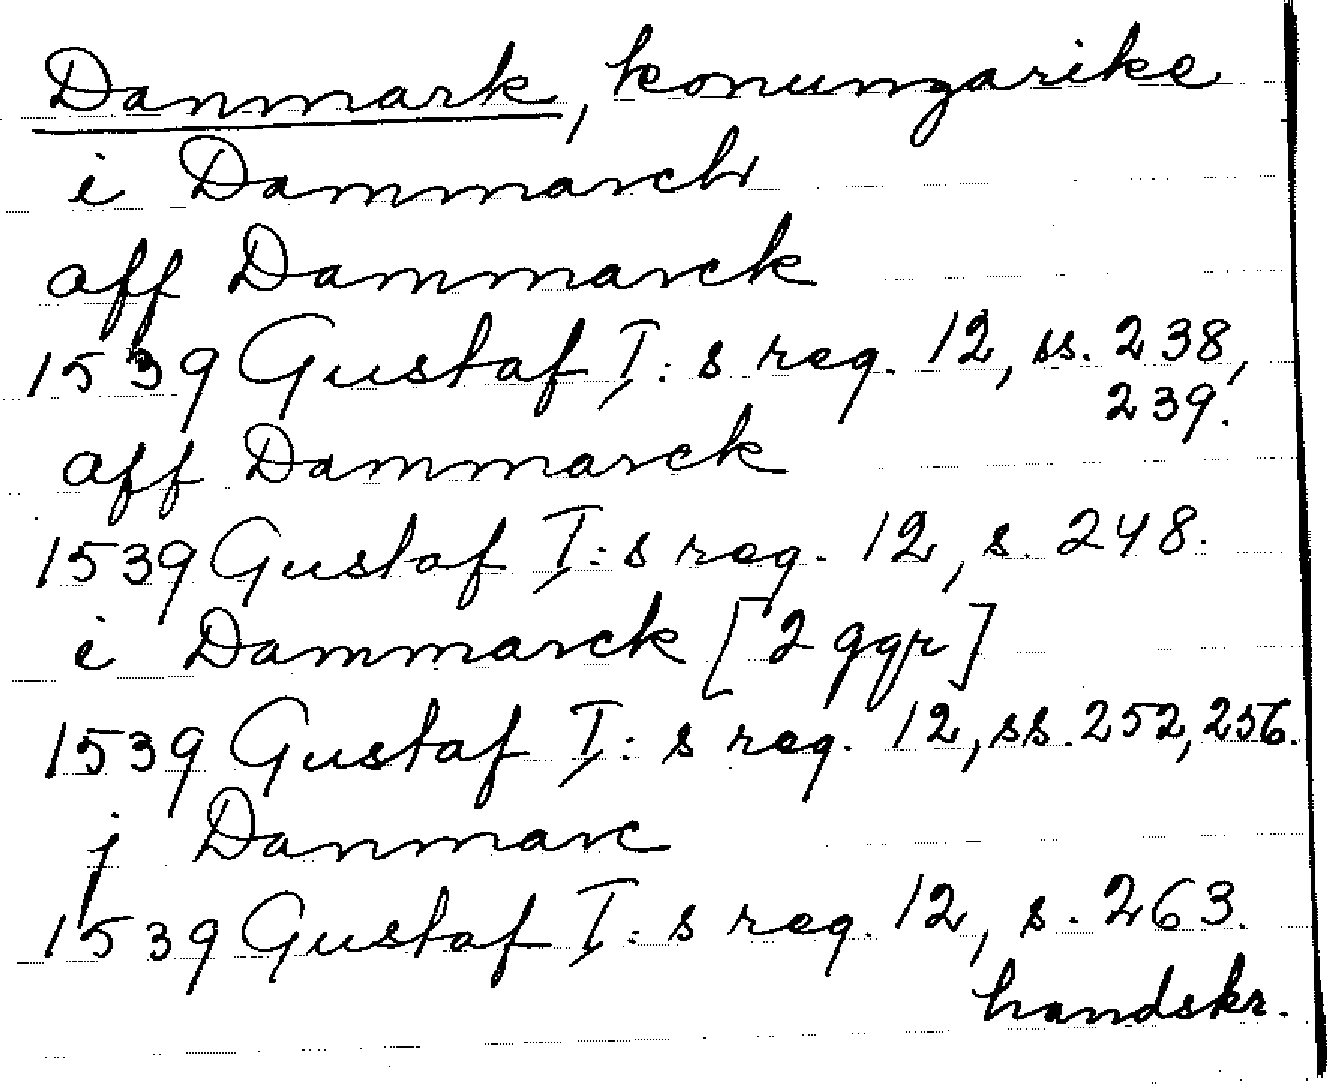 Danmark, konungarike
i Dammarch
aff Dammarck
1539 Gustaf I:s reg. 12, ss. 238,
239.
aff Dammarck
1539 Gustaf I:s reg. 12, s. 248.
i Dammarck [2 ggr]
1539 Gustaf I:s reg. 12, ss. 252, 256.
j Danmarc
1539 Gustaf I:s reg. 12, s. 263.
handskr.